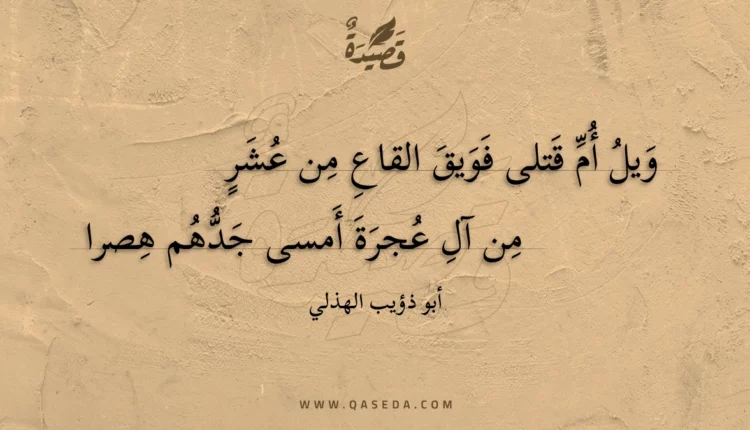 قَصِيْدَةٌ
وَيلُ أُمِّ قَتلى فَوَيقَ القاعِ مِن عُشَرٍ
مِن آلِ عُجرَةَ أَمسى جَدُّهُم هِصرا
أبو ذؤيب الهذلي
WWW.QASEDA.COM